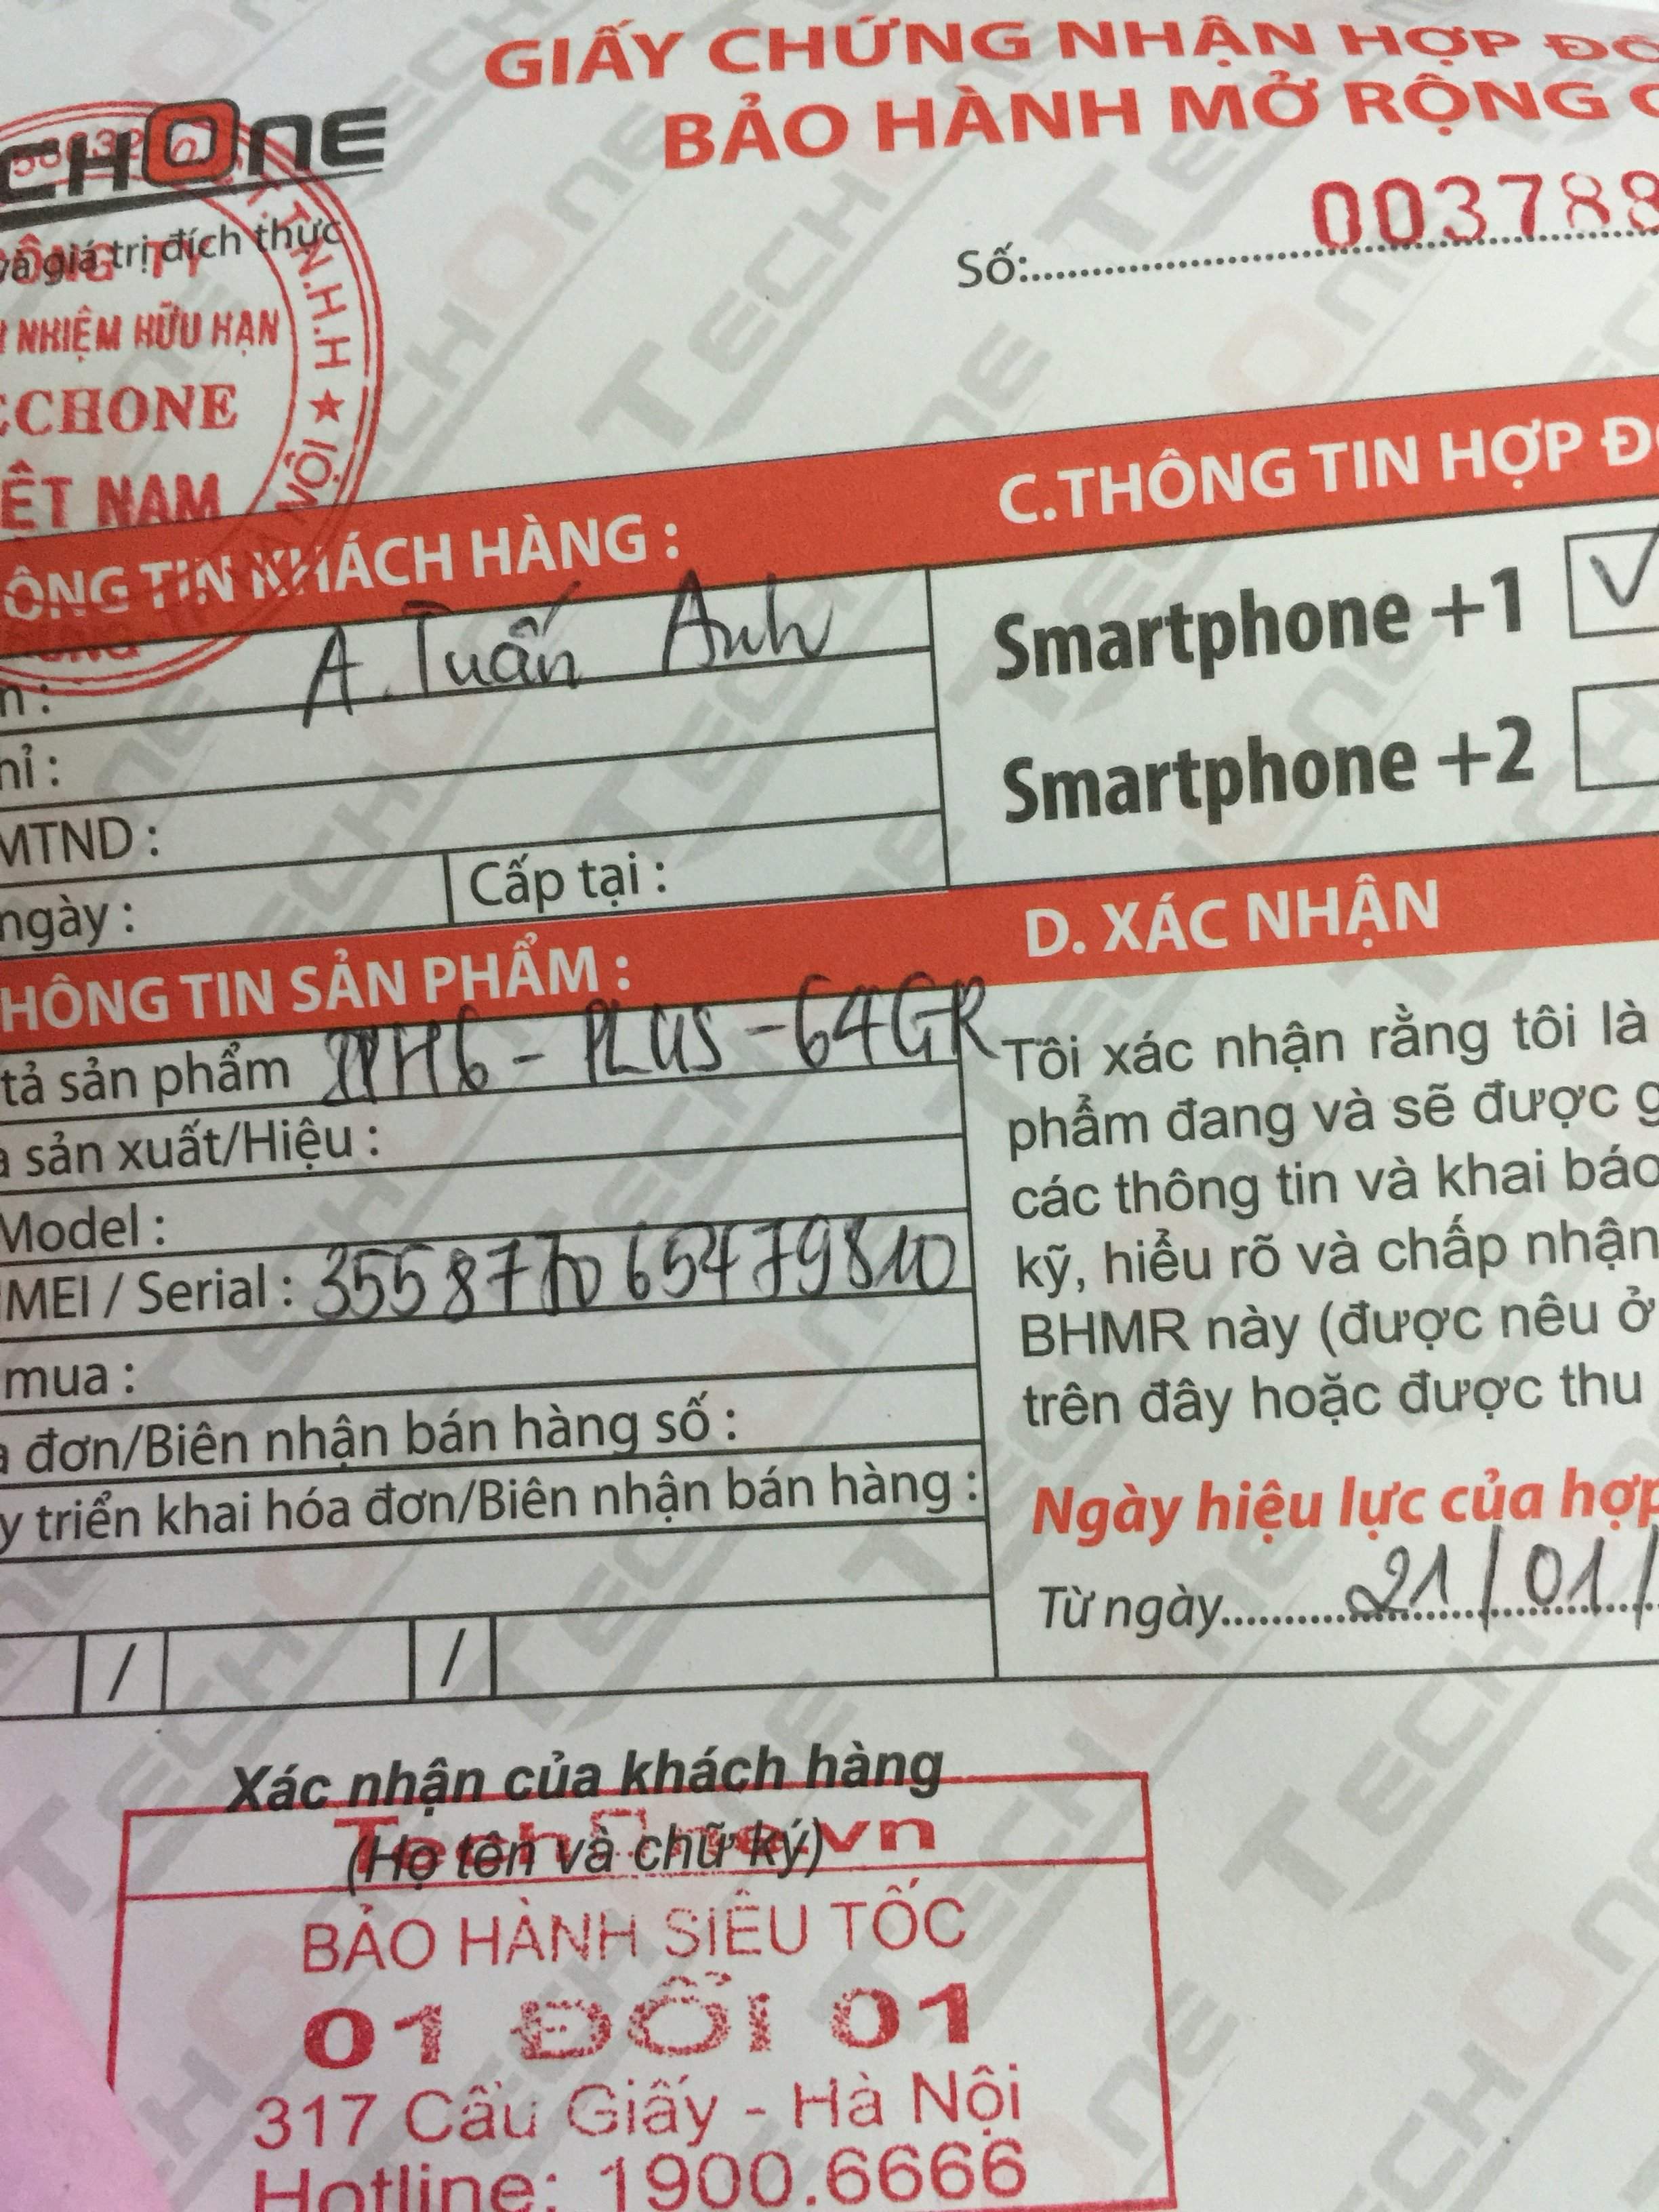 GIẤY CHỨNG NHẬN HỢP ĐỒ
BẢO HÀNH MỞ RỘNG
CHONE
và giá trị đích thực
Số: 003788
CÔNG TY
NHIỆM HỮU HẠN
ECHONE
ỆT NAM
T.N.H.H ★
ÔNG TIN KHÁCH HÀNG :
n : A. Tuấn Anh
hỉ :
MTND :
ngày :
Cấp tại :
C.THÔNG TIN HỢP Đ
Smartphone +1 ✓
Smartphone +2
HÔNG TIN SẢN PHẨM :
tả sản phẩm IPH6 - PLUS - 64GR
sản xuất/Hiệu :
Model :
MEI / Serial : 355877065479810
mua :
đơn/Biên nhận bán hàng số :
y triển khai hóa đơn/Biên nhận bán hàng :
/ /
D. XÁC NHẬN
Tôi xác nhận rằng tôi là
phẩm đang và sẽ được g
các thông tin và khai báo
kỹ, hiểu rõ và chấp nhận
BHMR này (được nêu ở
trên đây hoặc được thu
Ngày hiệu lực của hợp
Từ ngày 21/01/
Xác nhận của khách hàng
(Họ tên và chữ ký)
TechOne.vn
BẢO HÀNH SIÊU TỐC
01 ĐỔI 01
317 Cầu Giấy - Hà Nội
Hotline: 1900.6666